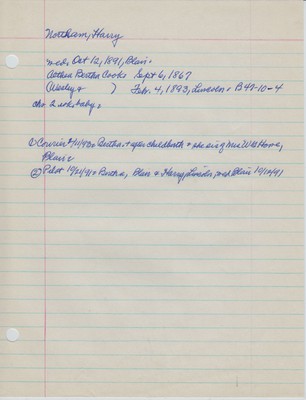 Northam, Harry
md. Oct 12, 1891, Blair.
Aetna Bertha Cook Sept 6, 1867
(Wesley ) Feb. 4, 1893, Lincoln B 49-10-4
ch. 2 wks baby
① Courier Bertha. after childbirth Mrs W H Hone,
Blair
② Pilot 10/21/91 Blair Harry, Lincoln, md Blair 10/12/91